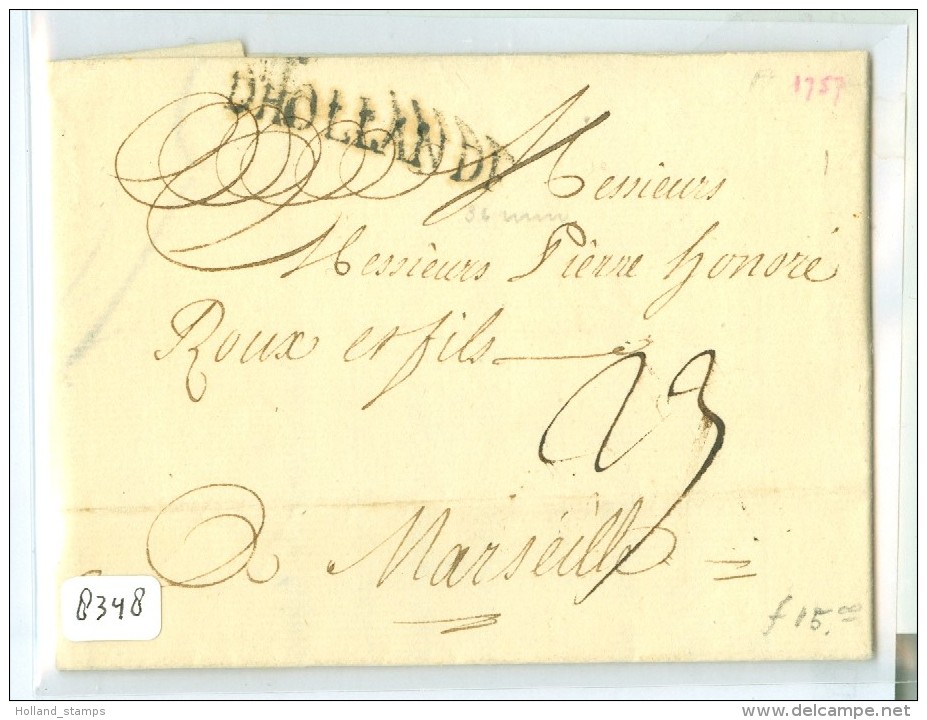 1757
DHOLLANDE
Messieurs
36 mm
Messieurs Pierre honoré
Roux et fils
23
A Marseille
8348
f 15.00
Holland_stamps
www.delcampe.net